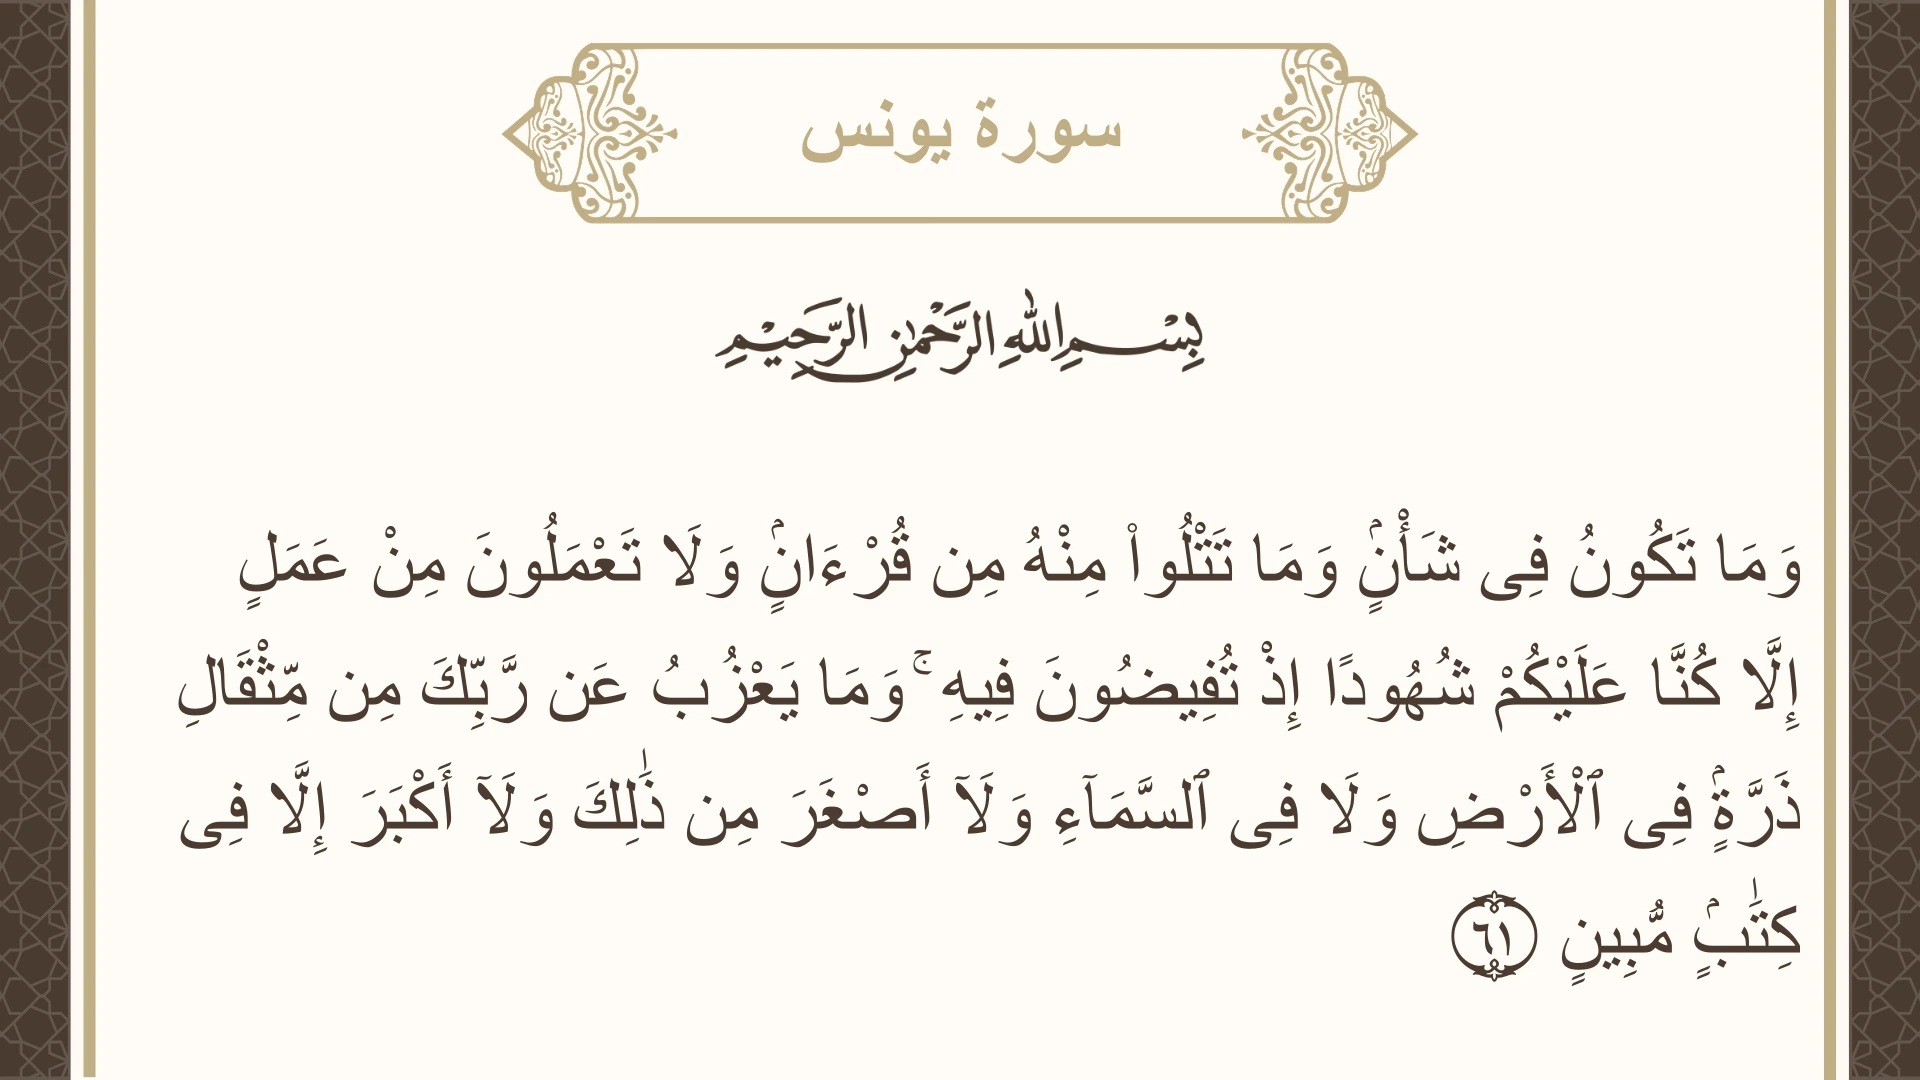 سورة يونس
بِسْمِ اللهِ الرَّحْمٰنِ الرَّحِيْمِ
وَمَا تَكُونُ فِى شَأْنٍۢ وَمَا تَتْلُوا۟ مِنْهُ مِن قُرْءَانٍۢ وَلَا تَعْمَلُونَ مِنْ عَمَلٍ
إِلَّا كُنَّا عَلَيْكُمْ شُهُودًا إِذْ تُفِيضُونَ فِيهِ ۚ وَمَا يَعْزُبُ عَن رَّبِّكَ مِن مِّثْقَالِ
ذَرَّةٍۢ فِى ٱلْأَرْضِ وَلَا فِى ٱلسَّمَآءِ وَلَآ أَصْغَرَ مِن ذَٰلِكَ وَلَآ أَكْبَرَ إِلَّا فِى
كِتَـٰبٍۢ مُّبِينٍ ٦١